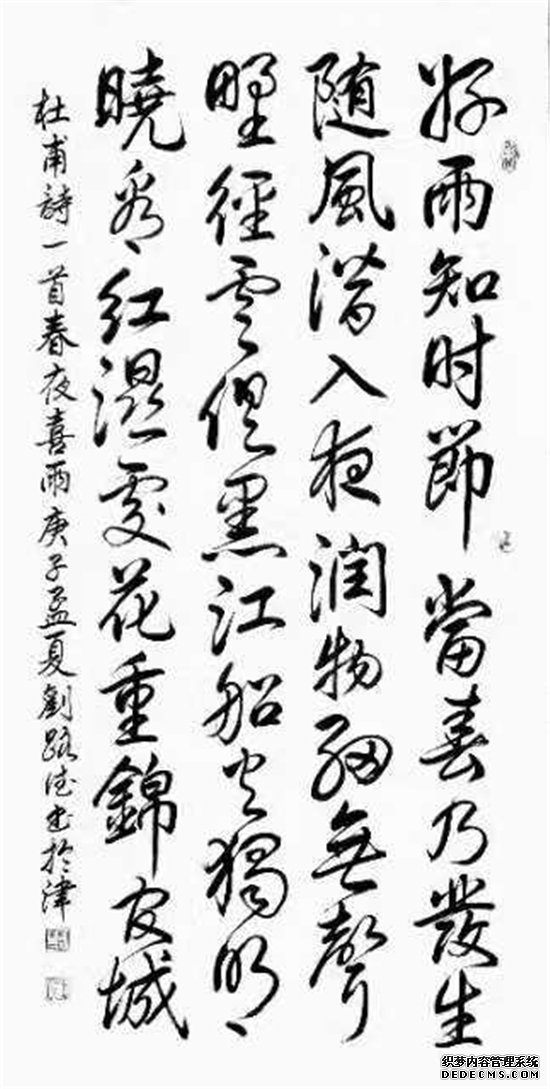 好雨知时節當春乃發生
随風潛入夜润物細無聲
野徑雲俱黑江船火獨明
曉看红濕處花重錦官城
杜甫詩一首春夜喜雨庚子孟夏劉路德書於津
织梦内容管理系统
DEDECMS.COM